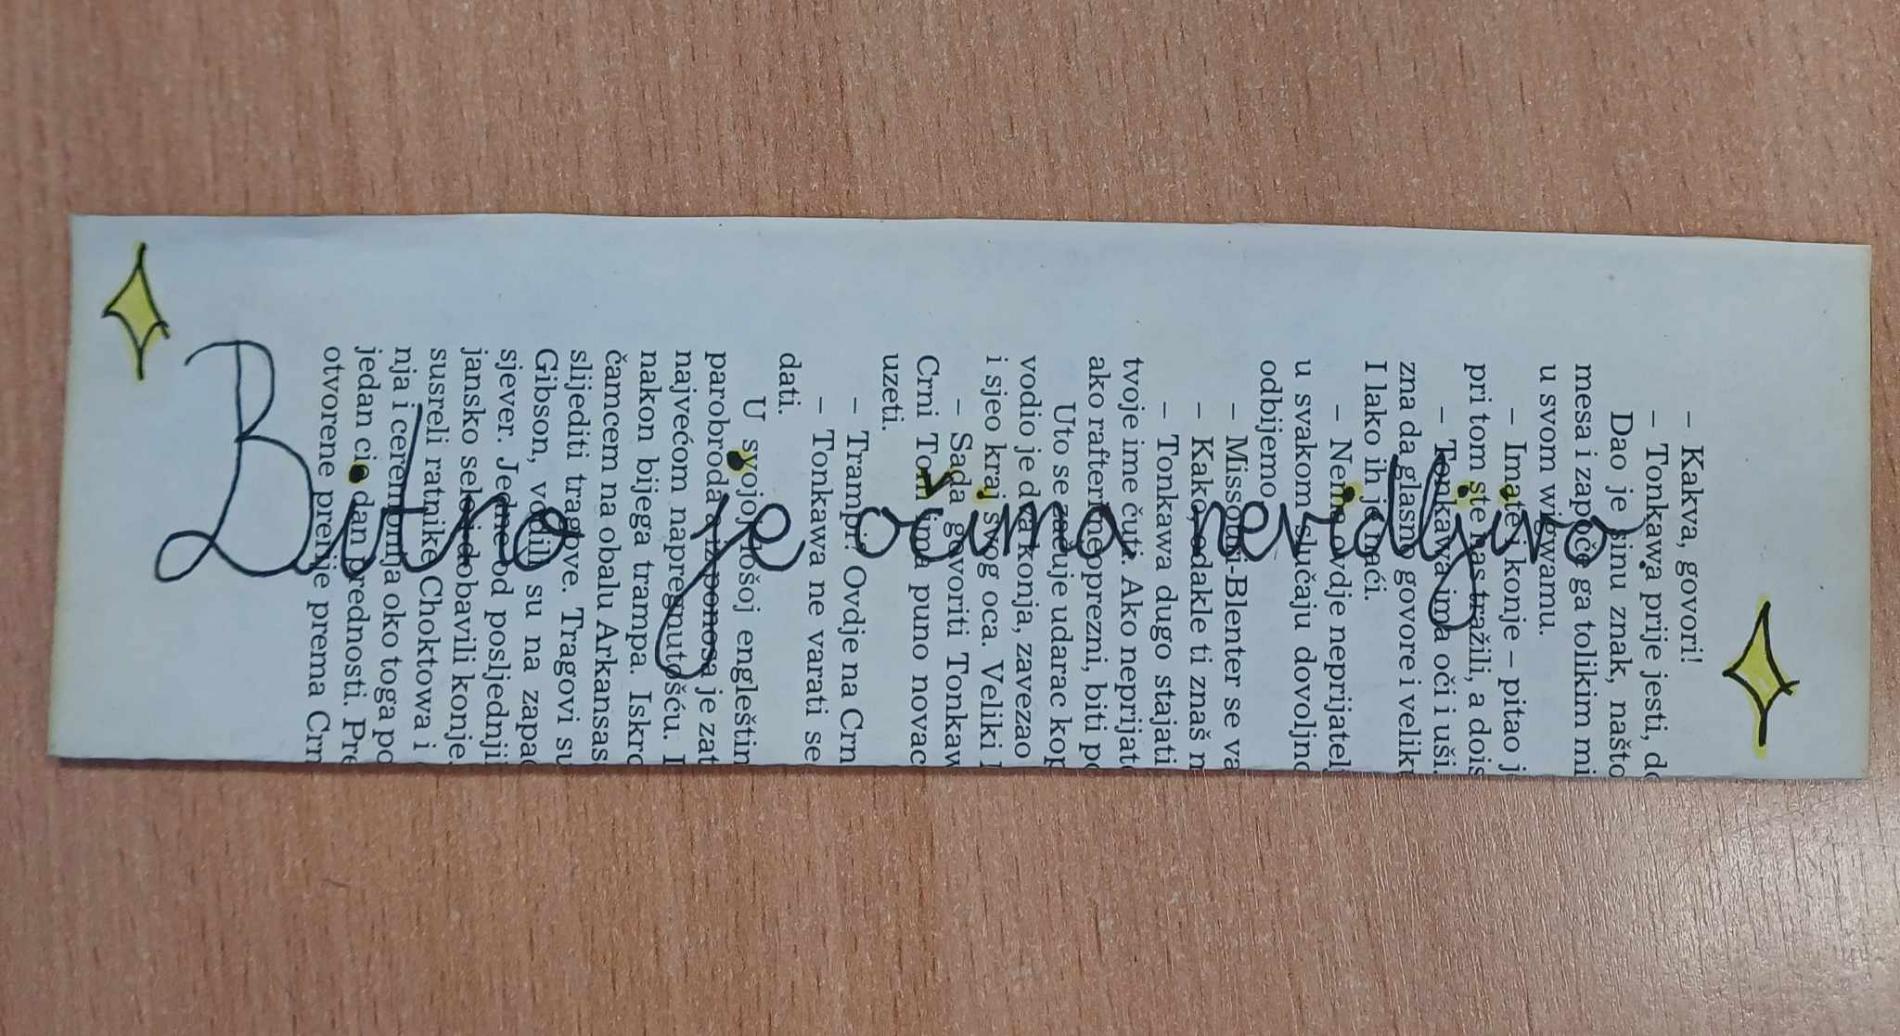 Bitno je očima nevidljivo
– Kakva, govori!
– Tonkawa prije jesti, do
Dao je sinu znak, našto
mesa i započe ga tolikim mi
u svom wigwamu.
– Imate i konje – pitao j
pri tom ste nas tražili, a dois
– Tonkawa ima oči i uši.
zna da glasno govore i velik
I lako ih je naći.
– Nema ovdje neprijatel
u svakom slučaju dovoljno
odbijemo.
– Missouri-Blenter se va
– Kako, odakle ti znaš n
– Tonkawa dugo stajati
tvoje ime čuti. Ako neprijate
ako rafteri neoprezni, biti po
Uto se začuje udarac kop
vodio je dva konja, zavezao
i sjeo kraj svog oca. Veliki
– Sada govoriti Tonkaw
Crni Tom ima puno novac
uzeti.
– Tramp? Ovdje na Crn
– Tonkawa ne varati se
dati.
U svojoj lošoj engleštin
parobroda ponosa je zat
najvećom napregnutošću. I
nakon bijega trampa. Iskrc
čamcem na obalu Arkansas
slijediti tragove. Tragovi su
Gibson, vodili su na zapad
sjever. Jedne od posljednji
jansko selo i dobavili konje.
susreli ratnike Choktowa i
nja i ceremonija oko toga po
jedan cio dan prednosti. Pre
otvorene prerije prema Crn